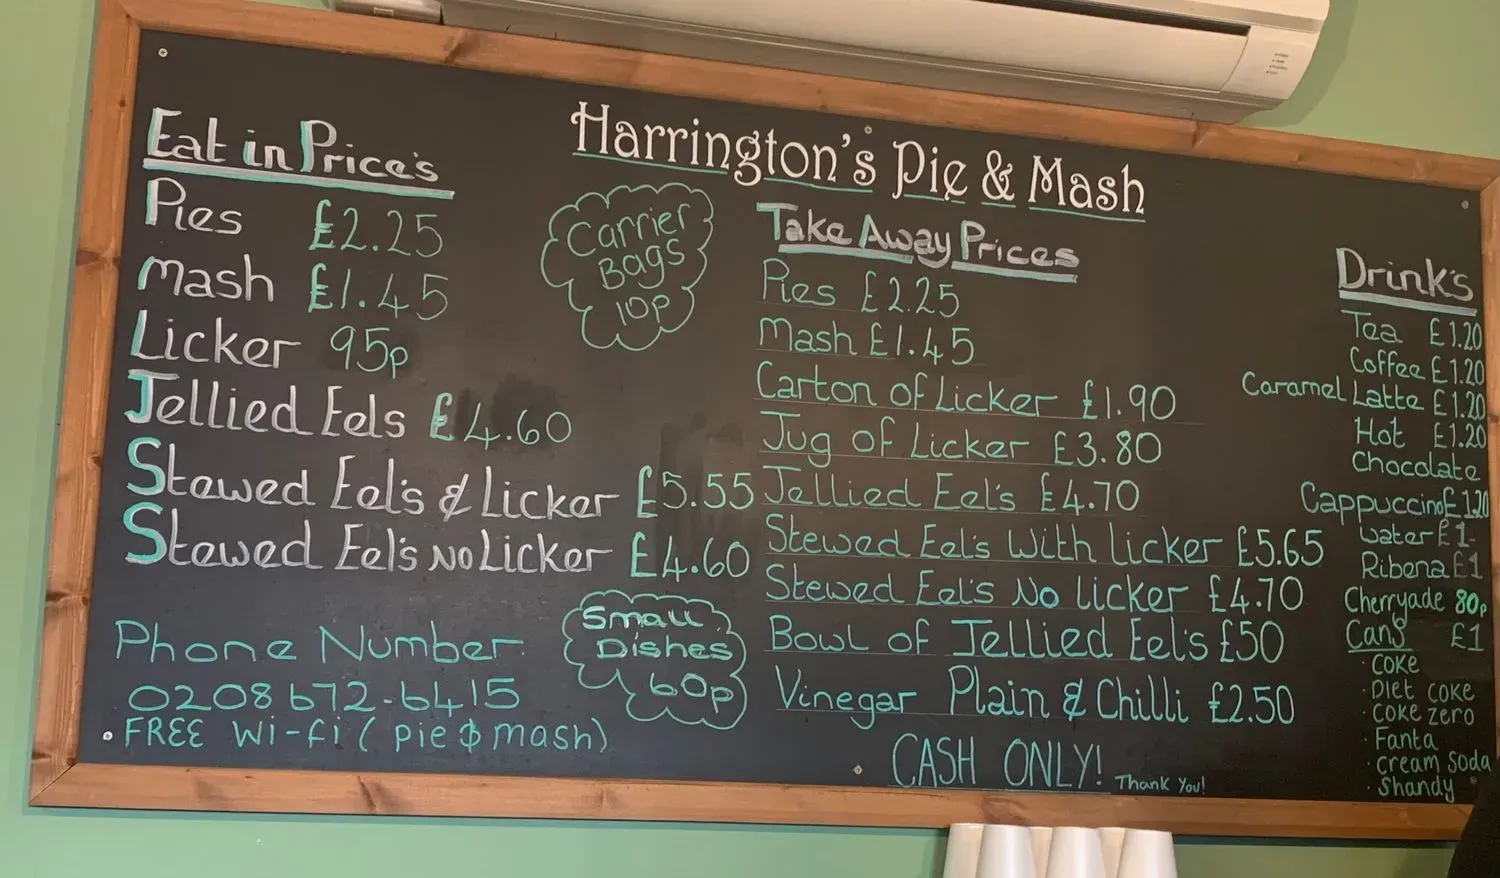 Harrington's Pie & Mash
Eat in Price's
Pies £2.25
Mash £1.45
Licker 95p
Jellied Eels £4.60
Stewed Eel's & Licker £5.55
Stewed Eel's No Licker £4.60
Phone Number
0208 672-6415
FREE Wi-fi (pie & mash)
Carrier
Bags
10p
Small
Dishes
60p
Take Away Prices
Pies £2.25
Mash £1.45
Carton of Licker £1.90
Jug of Licker £3.80
Jellied Eel's £4.70
Stewed Eel's With licker £5.65
Stewed Eel's No licker £4.70
Bowl of Jellied Eel's £50
Vinegar Plain & Chilli £2.50
CASH ONLY! Thank You!
Drink's
Tea £1.20
Coffee £1.20
Caramel Latte £1.20
Hot £1.20
Chocolate
Cappuccino £1.20
Water £1-
Ribena £1
Cherryade 80p
Cans £1
· COKE
· Diet coke
· coke zero
· Fanta
· cream soda
· Shandy